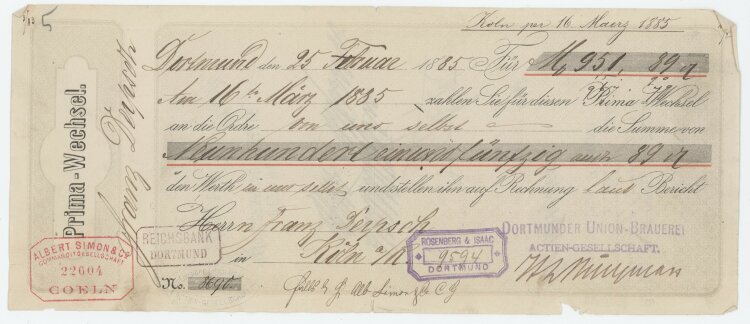 5
Köln per 16 Maerz 1885
Dortmund den 25 Februar 1885 Für M 951. 89 ₰
Am 16ten März 1885 zahlen Sie für diesen Prima Wechsel
an die Ordre von uns selbst die Summe von
Neunhundert einundfünfzig auch 89 ₰
den Werth in uns selbst und stellen ihn auf Rechnung laut Bericht
Herrn Franz
in Köln a/R
No.
Prima-Wechsel.
Franz
ALBERT SIMON & Co
COMMANDITGESELLSCHAFT
22604
COELN
REICHSBANK
DORTMUND
ROSENBERG & ISAAC
9594
DORTMUND
DORTMUNDER UNION-BRAUEREI
ACTIEN-GESELLSCHAFT.
Alb. Simon & Co